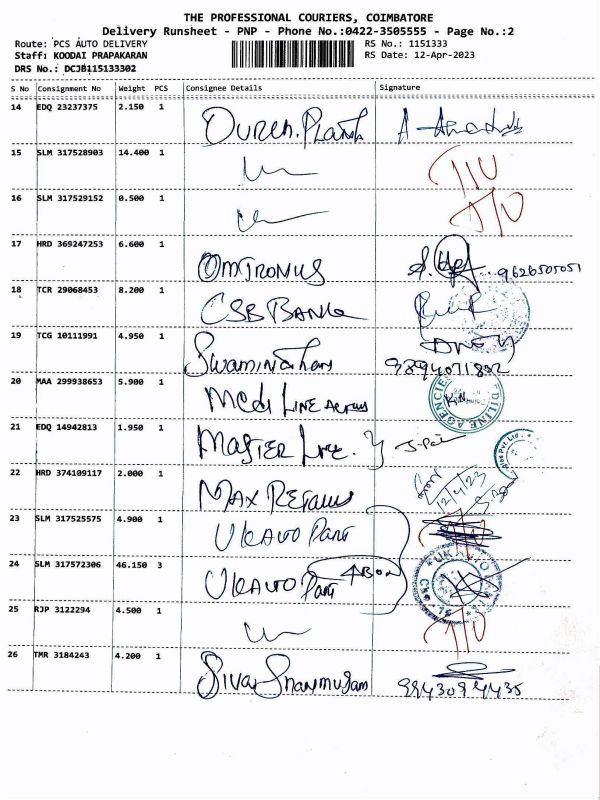 THE PROFESSIONAL COURIERS, COIMBATORE
Delivery Runsheet - PNP - Phone No.:0422-3505555 - Page No.:2
Route: PCS AUTO DELIVERY RS No.: 1151333
Staff: KOODAI PRAPAKARAN RS Date: 12-Apr-2023
DRS No.: DCJB115133302
S No Consignment No Weight PCS Consignee Details Signature
14 EDQ 23237375 2.150 1
15 SLM 317528903 14.400 1
16 SLM 317529152 0.500 1
17 HRD 369247253 6.600 1 OMTRONICS 9626505051
18 TCR 29068453 8.200 1 CSB BANK
19 TCG 10111991 4.950 1 Swaminathan
9894071802
20 MAA 299938653 5.900 1 Medi LINE DILINE AGENCIES
21 EDQ 14942813 1.950 1 MASTER
22 HRD 374109117 2.000 1 MAX 12/4/23
23 SLM 317525575 4.900 1 UK AUTO Part
24 SLM 317572306 46.150 3 UK AUTO Part UK AUTO
25 RJP 3122294 4.500 1
26 TMR 3184243 4.200 1 Siva Shanmugam 9943094435